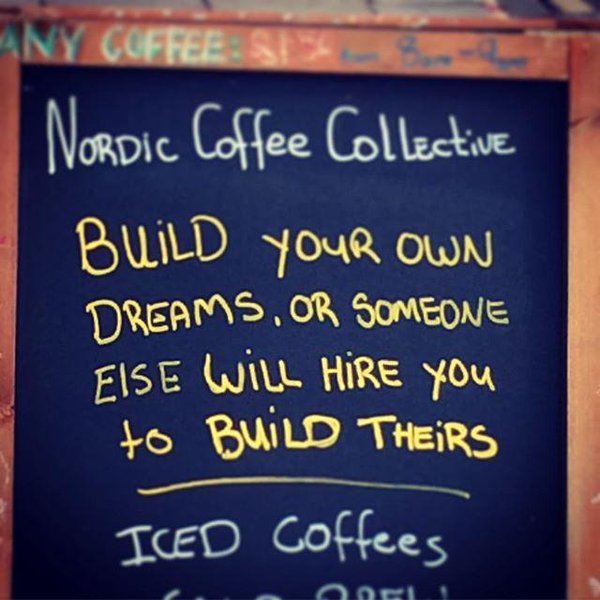 ANY COFFEE:
NORDIC Coffee Collective
BUiLD YOUR OWN
DREAMS, OR SOMEONE
ElSE WiLL HiRE YOU
to BUiLD THEiRS
ICED Coffees